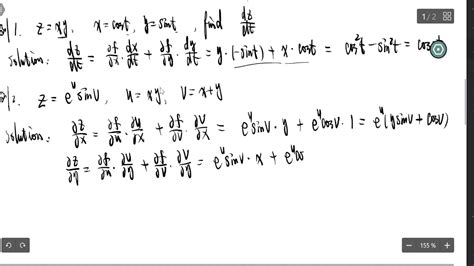 1 / 2
1. z=xy, x=cost, y=sint, find dz/dt
Solution: dz/dt = ∂f/∂x · dx/dt + ∂f/∂y · dy/dt = y·(-sint) + x·cost = cos²t - sin²t = cos
2. z = e^u sinv, u=xy, v=x+y
Solution: ∂z/∂x = ∂f/∂u · ∂u/∂x + ∂f/∂v · ∂v/∂x = e^u sinv · y + e^u cosv · 1 = e^u (y sinv + cosv)
∂z/∂y = ∂f/∂u · ∂u/∂y + ∂f/∂v · ∂v/∂y = e^u sinv · x + e^u co
155 %